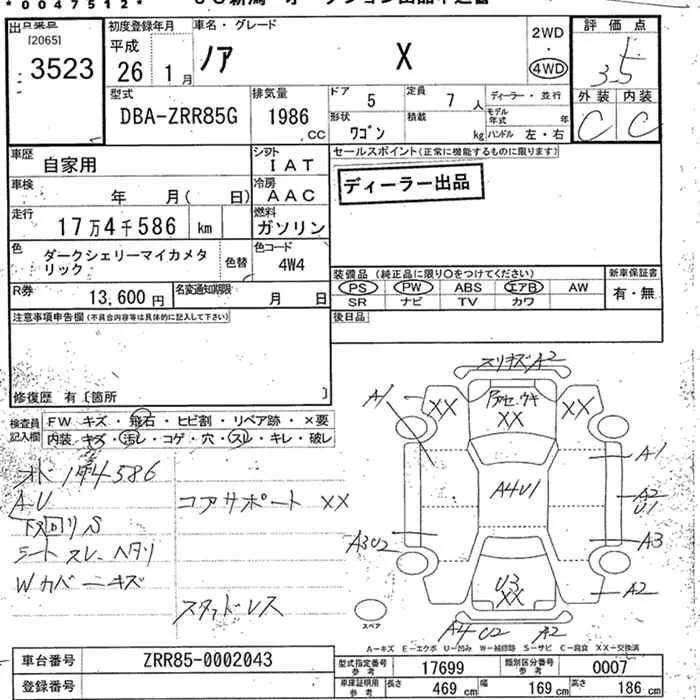 *0047512*
[2065]
3523
初度登録年月
平成
26 1月
車名・グレード
ノア X
2WD
・
4WD
評価点
3.5
外装 内装
C C
型式
DBA-ZRR85G
排気量
1986
CC
ドア
5
定員
7人
形状
ワゴン
積載
kg
ディーラー・並行
モデル年式 年
ハンドル 左・右
車歴
自家用
シフト
IAT
セールスポイント(正常に機能するものに限ります)
ディーラー出品
車検
年 月( 日)
冷房
AAC
走行
17万4千586 km
燃料
ガソリン
色
ダークシェリーマイカメタ
リック
色替
色コード
4W4
装備品(純正品に限り○をつけてください)
PS PW ABS エアB AW
SR ナビ TV カワ
新車保証書
有・無
R券
13,600円
名変通知期限
月 日
後日品
注意事項申告欄(不具合内容等は具体的に記入して下さい)
修復歴 有〔箇所 〕
検査員
記入欄
FW キズ・飛石・ヒビ割・リペア跡・×要
内装・キズ・汚レ・コゲ・穴・スレ・キレ・破レ
AU
下廻リS
シートスレ ヘタリ
Wカバーキズ
コアサポート XX
スタッドレス
A2
A1
XX
XX
XX
A4U1
A1
A2
U1
A3U2
A3
U3
XX
A2
A4 U2 A2
スペア
A-キズ E-エクボ U-凹み W-補修跡 S-サビ C-腐食 XX-交換済
車台番号
ZRR85-0002043
登録番号
型式指定番号
参考
17699
類別区分番号
参考
0007
車庫証明用
参考
長さ
469cm
幅
169cm
高さ
186cm